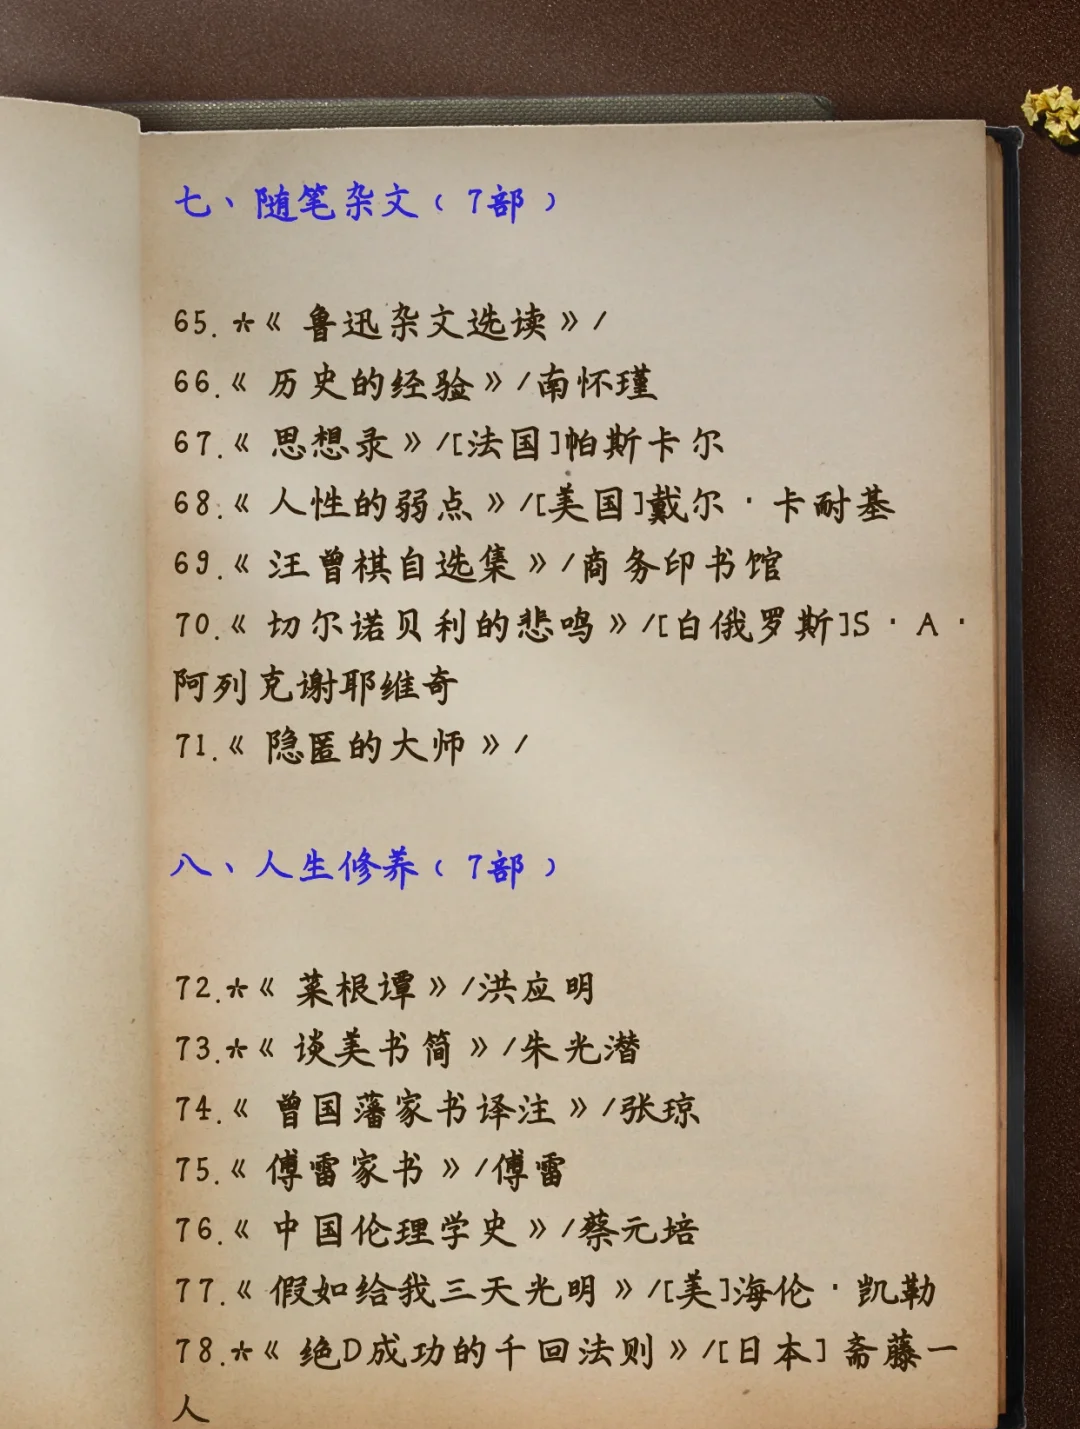 七、随笔杂文（7部）
65.*《鲁迅杂文选读》/
66.《历史的经验》/南怀瑾
67.《思想录》/[法国]帕斯卡尔
68.《人性的弱点》/[美国]戴尔·卡耐基
69.《汪曾棋自选集》/商务印书馆
70.《切尔诺贝利的悲鸣》/[白俄罗斯]S·A·
阿列克谢耶维奇
71.《隐匿的大师》/
八、人生修养（7部）
72.*《菜根谭》/洪应明
73.*《谈美书简》/朱光潜
74.《曾国藩家书译注》/张琼
75.《傅雷家书》/傅雷
76.《中国伦理学史》/蔡元培
77.《假如给我三天光明》/[美]海伦·凯勒
78.*《绝D成功的千回法则》/[日本]斋藤一
人